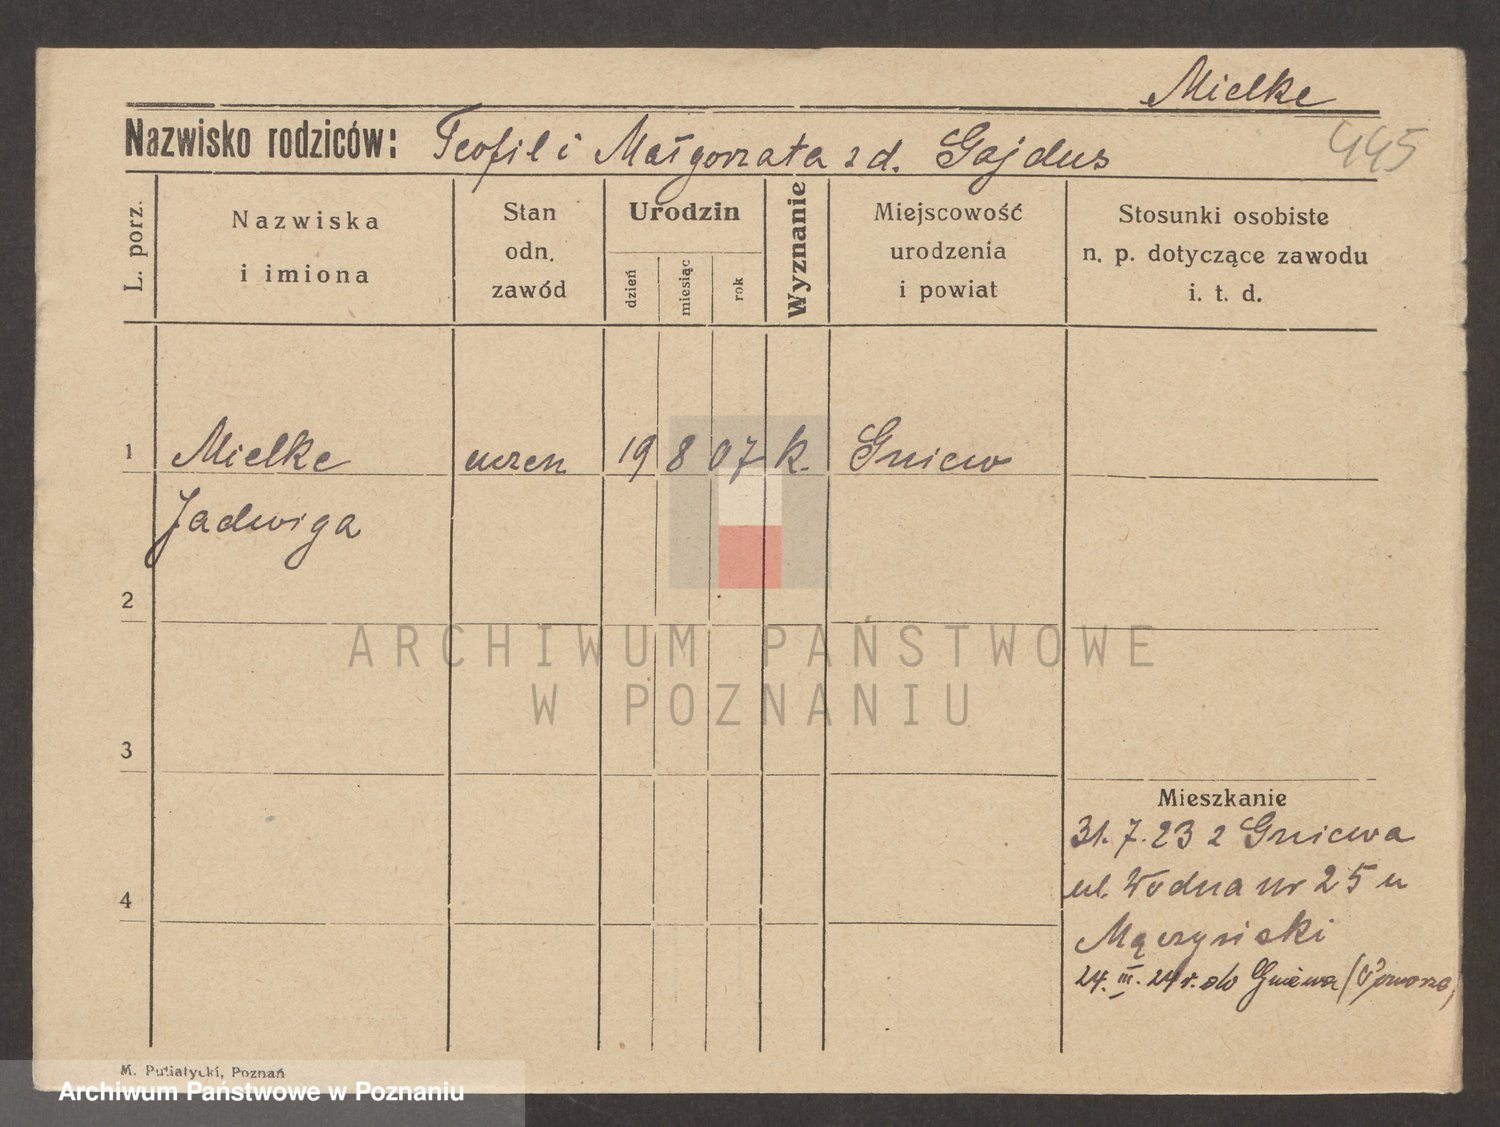 Mielke
445
Nazwisko rodziców: Teofil i Małgorzata z d. Gajdus
L. porz.
Nazwiska
i imiona
Stan
odn.
zawód
Urodzin
dzień
miesiąc
rok
Wyznanie
Miejscowość
urodzenia
i powiat
Stosunki osobiste
n. p. dotyczące zawodu
i. t. d.
1 Mielke uczen 19 8 07 k. Gniew
Jadwiga
2
3
4
Mieszkanie
31. 7. 23 z Gniewa
ul. Wodna nr 25 u
24. III. 24 r. do Gniewa (Pomorze)
M. Putiatycki, Poznań
ARCHIWUM PAŃSTWOWE
W POZNANIU
Archiwum Państwowe w Poznaniu